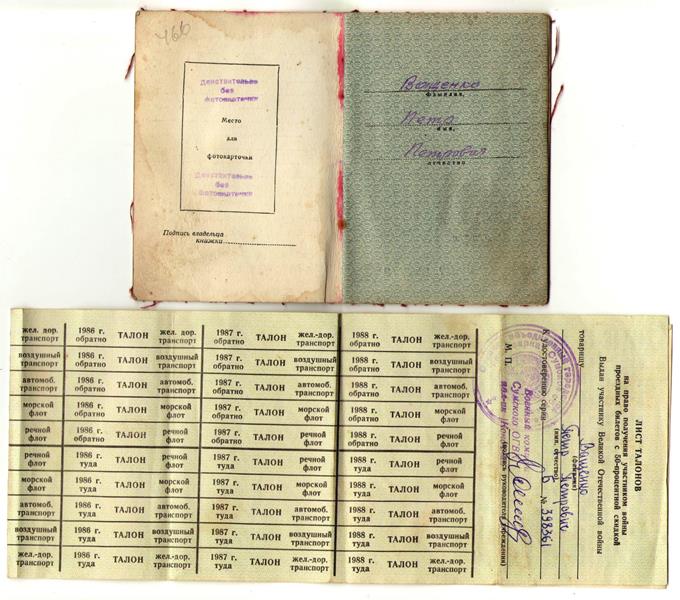 466
Действительно
без
фотокарточки
Место
для
фотокарточки
Действительно
без
фотокарточки
Подпись владельца
книжки
Ващенко
фамилия,
Петр
имя,
Петрович
отчество
ЛИСТ ТАЛОНОВ
на право получения участником войны
проездных билетов с 50-процентной скидкой
Выдан участнику Великой Отечественной войны
товарищу Ващенко
(фамилия)
Петро Петрович
(имя, отчество)
К удостоверению серия Б № 398361
М. П.
жел. дор. 1986 г. ТАЛОН жел. дор. 1987 г. ТАЛОН жел.-дор. 1988 г. ТАЛОН жел.-дор.
транспорт обратно транспорт обратно транспорт обратно транспорт
воздушный 1986 г. ТАЛОН воздушный 1987 г. ТАЛОН воздушный 1988 г. ТАЛОН воздушный
транспорт обратно транспорт обратно транспорт обратно транспорт
автомоб. 1986 г. ТАЛОН автомоб. 1987 г. ТАЛОН автомоб. 1988 г. ТАЛОН автомоб.
транспорт обратно транспорт обратно транспорт обратно транспорт
морской 1986 г. ТАЛОН морской 1987 г. ТАЛОН морской 1988 г. ТАЛОН морской
флот обратно флот обратно флот обратно флот
речной 1986 г. ТАЛОН речной 1987 г. ТАЛОН речной 1988 г. ТАЛОН речной
флот обратно флот обратно флот обратно флот
речной 1986 г. ТАЛОН речной 1987 г. ТАЛОН речной 1988 г. ТАЛОН речной
флот туда флот туда флот туда флот
морской 1986 г. ТАЛОН морской 1987 г. ТАЛОН морской 1988 г. ТАЛОН морской
флот туда флот туда флот туда флот
автомоб. 1986 г. ТАЛОН автомоб. 1987 г. ТАЛОН автомоб. 1988 г. ТАЛОН автомоб.
транспорт туда транспорт туда транспорт туда транспорт
воздушный 1986 г. ТАЛОН воздушный 1987 г. ТАЛОН воздушный 1988 г. ТАЛОН воздушный
транспорт туда транспорт туда транспорт туда транспорт
жел.-дор. 1986 г. ТАЛОН жел.-дор. 1987 г. ТАЛОН жел.-дор. 1988 г. ТАЛОН жел.-дор.
транспорт туда транспорт туда транспорт туда транспорт